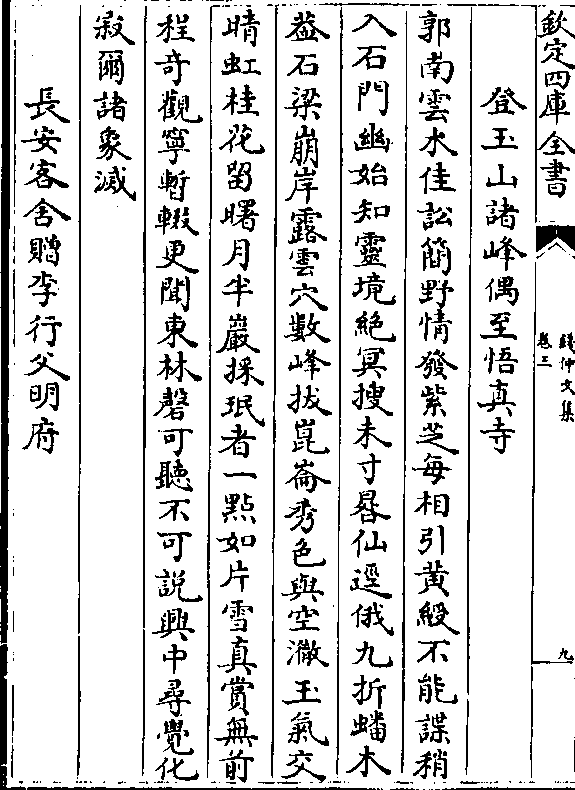 欽定四庫全書
錢仲文集
卷三
九
登玉山諸峰偶至悟真寺
郭南雲水佳訟簡野情發紫芝每相引黃綬不能諜稍
入石門幽始知靈境絕冥搜未寸晷仙逕俄九折蟠木
葢石梁崩岸露雲穴數峰拔崑崙秀色與空澈玉氣交
晴虹桂花留曙月半巖採珉者一點如片雪真賞無前
程奇觀寧暫輟更聞東林磬可聽不可説興中尋覺化
寂爾諸象滅
長安客舍贈李行父明府